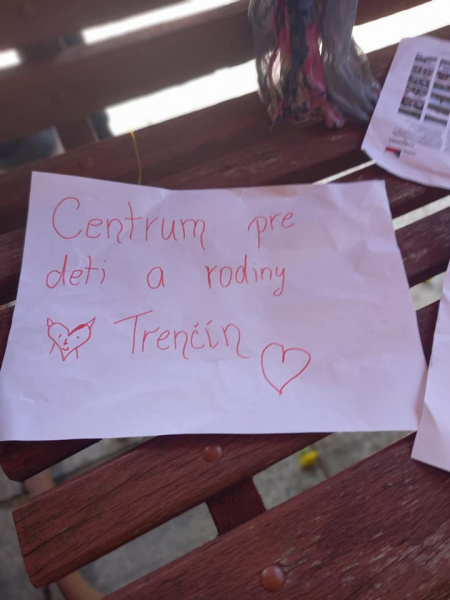 Centrum pre
deti a rodiny
Trenčín